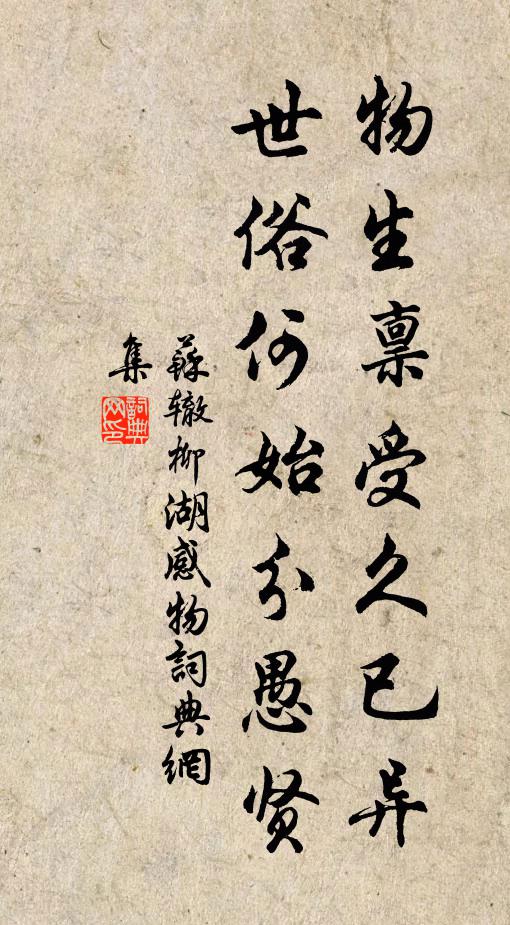 物生禀受久已异
世俗何始分愚贤
蘇辙柳湖感物詞典網
集
詞典
网印